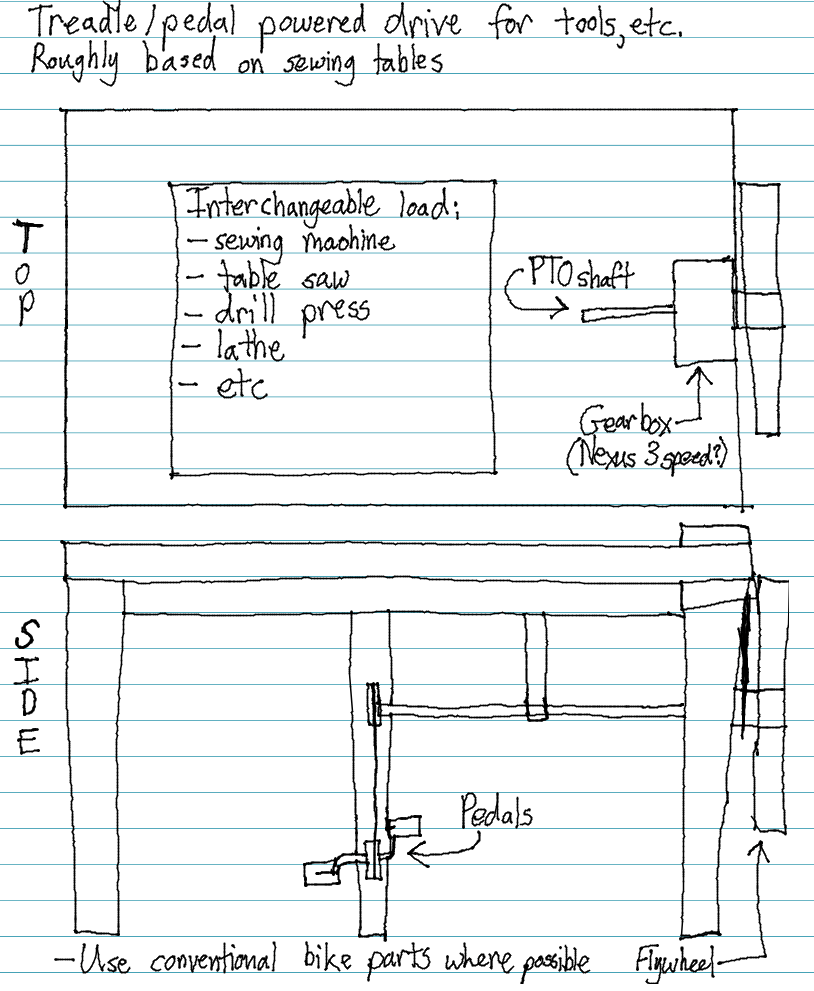 Treadle/pedal powered drive for tools, etc.
Roughly based on sewing tables
TOP
Interchangeable load:
- sewing machine
- table saw
- drill press
- lathe
- etc
PTO shaft
Gearbox
(Nexus 3 speed?)
SIDE
Pedals
- Use conventional bike parts where possible
Flywheel